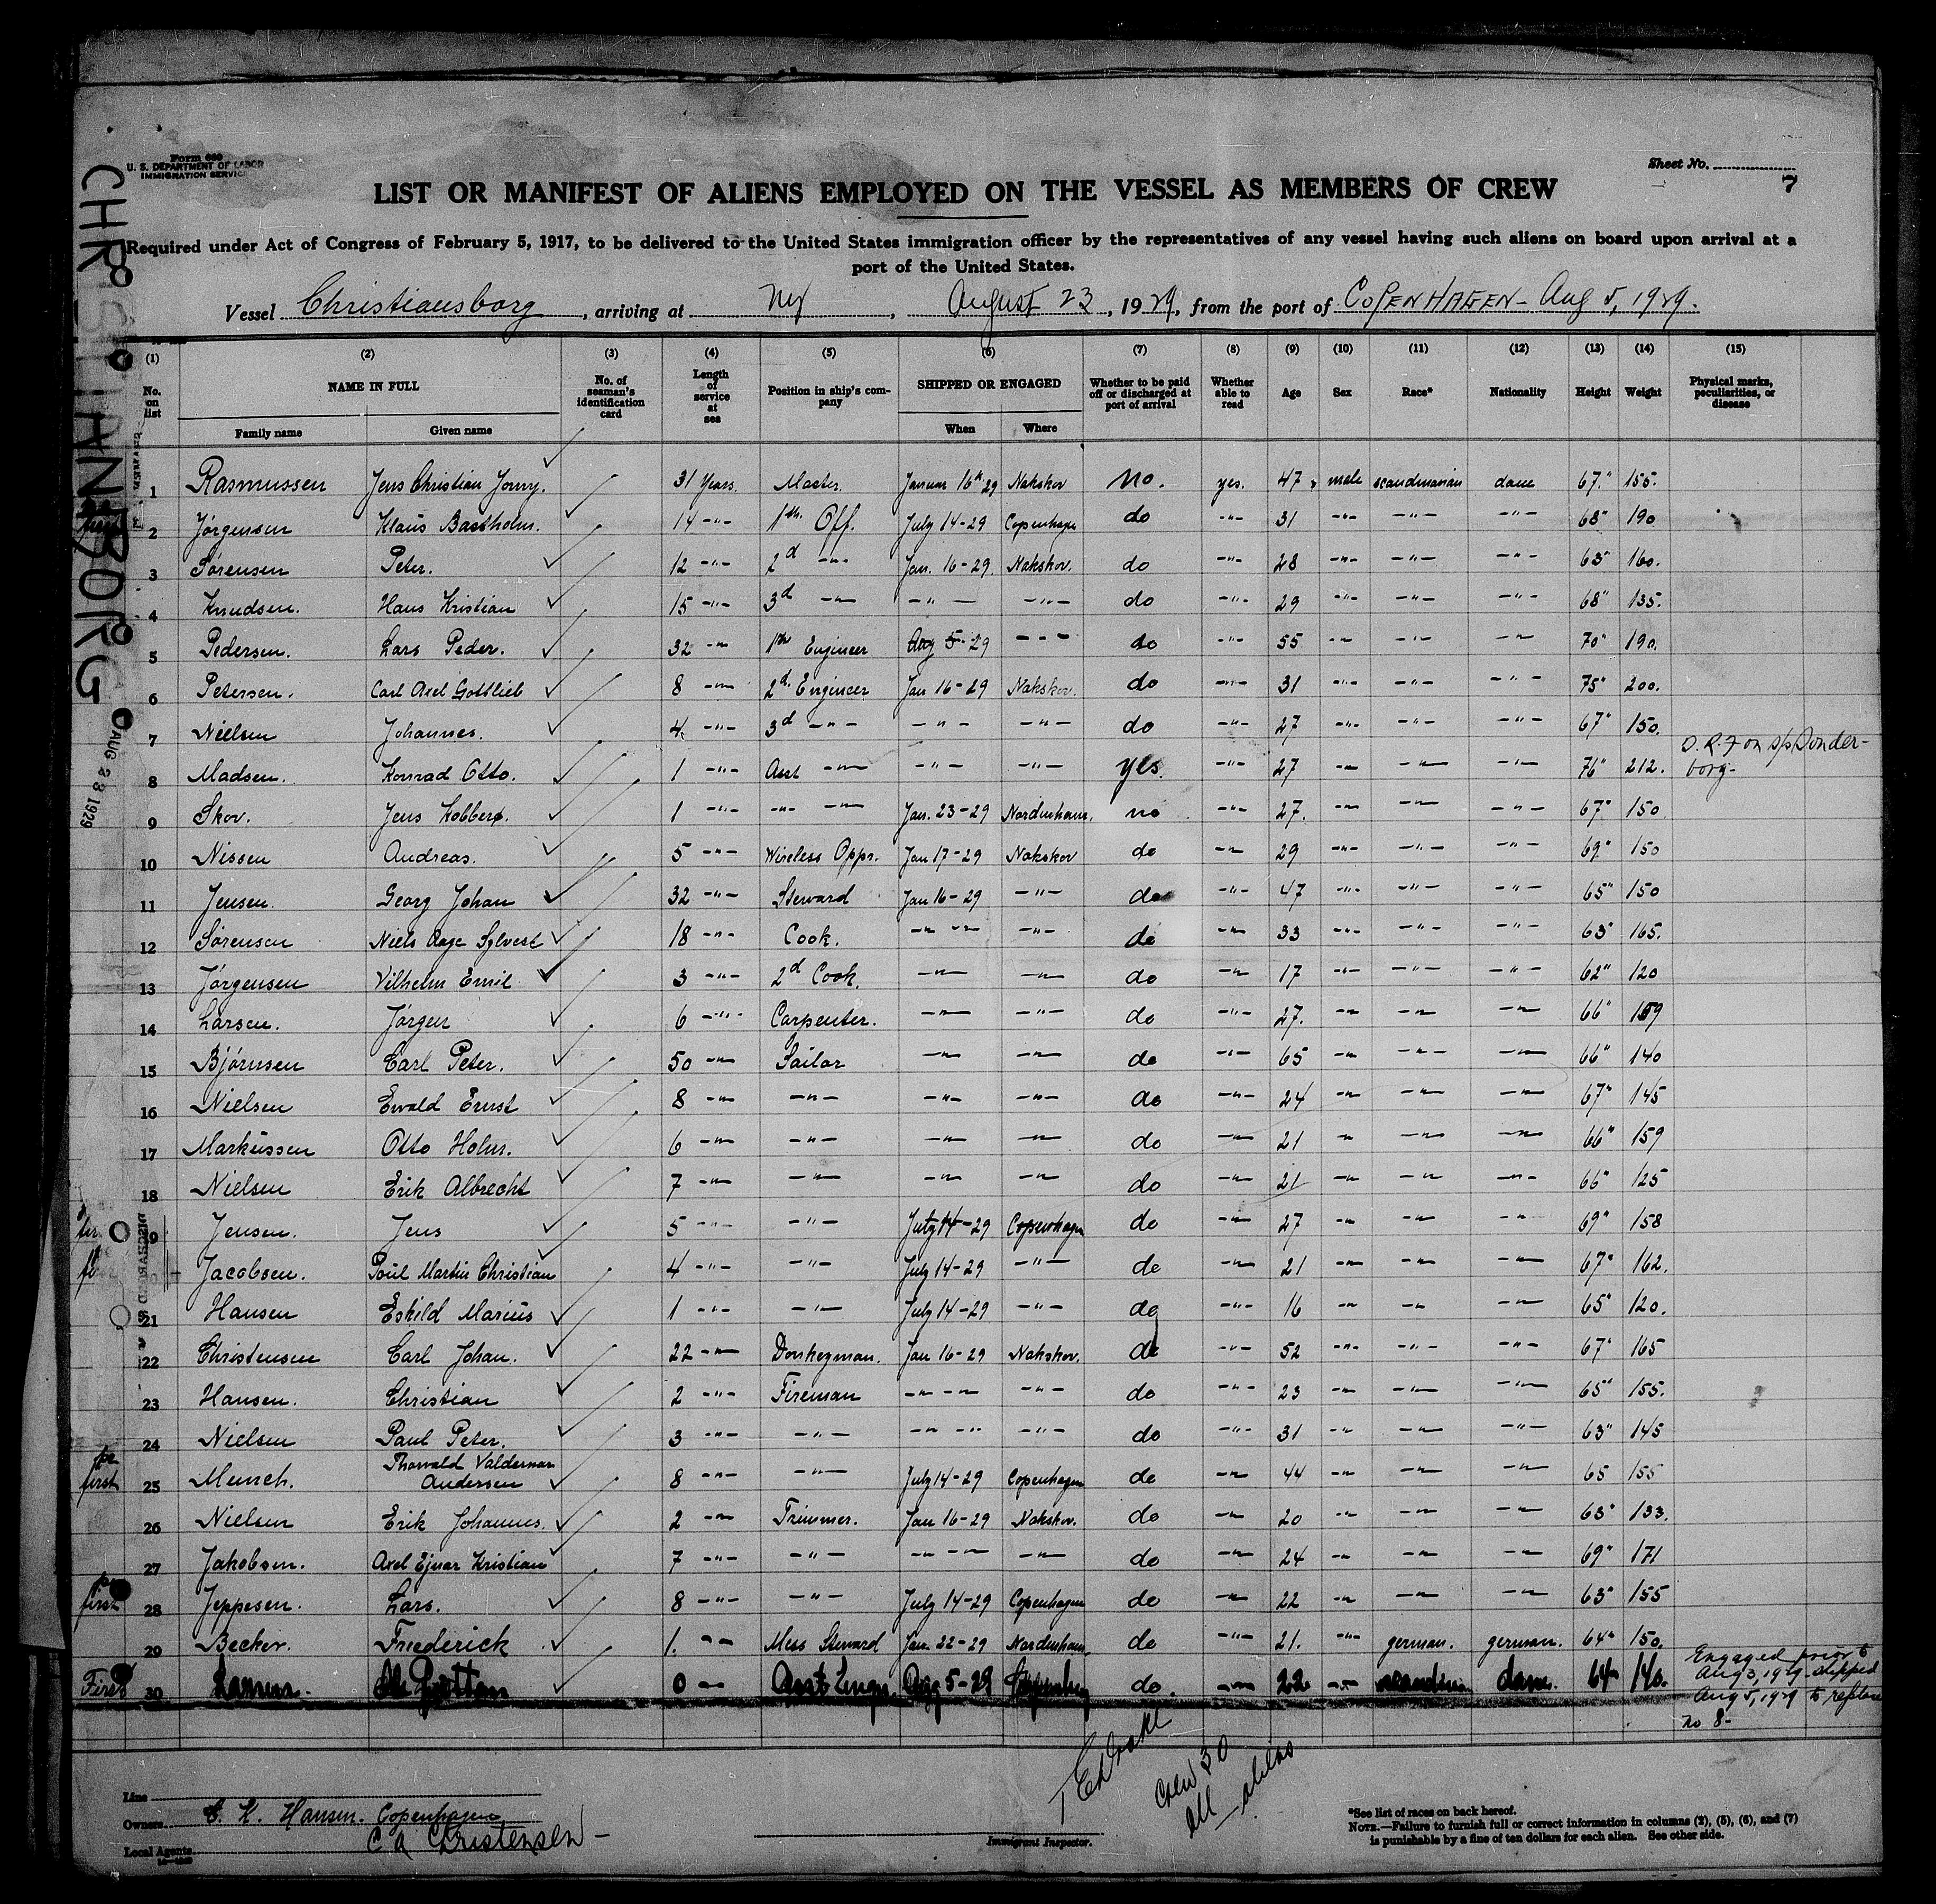 Form 680
U. S. DEPARTMENT OF LABOR
IMMIGRATION SERVICE
Sheet No.
7
LIST OR MANIFEST OF ALIENS EMPLOYED ON THE VESSEL AS MEMBERS OF CREW
Required under Act of Congress of February 5, 1917, to be delivered to the United States immigration officer by the representatives of any vessel having such aliens on board upon arrival at a
port of the United States.
Vessel Christiansborg, arriving at NY, August 23, 1929, from the port of COPENHAGEN - Aug 5, 1929.
CHRISTIANSBORG
AUG 23 1929
(1) (2) (3) (4) (5) (6) (7) (8) (9) (10) (11) (12) (13) (14) (15)
No. on list NAME IN FULL Family name Given name No. of seaman's identification card Length of service at sea Position in ship's company SHIPPED OR ENGAGED When Where Whether to be paid off or discharged at port of arrival Whether able to read Age Sex Race* Nationality Height Weight Physical marks, peculiarities, or disease
1 Rasmussen Jens Christian Jonny. 31 Years. Master. 16th 29 Nakskov No. yes. 47 male scandinavian dane 67" 155.
2 Jørgensen Klaus Bastholm. 14 -"- 1th Off. July 14-29 Copenhagen do -"- 31 -"- -"- -"- 68" 190
3 Sørensen Peter. 12 -"- 2d -"- Jan. 16-29 Nakskov. do -"- 28 -"- -"- -"- 63" 160.
4 Knudsen. Hans Kristian 15 -"- 3d -"- -"- -"- do -"- 29 -"- -"- -"- 68" 135.
5 Pedersen. Lars Peder. 32 -"- 1th Engineer Aug 5-29 -"- do -"- 55 -"- -"- -"- 70" 190.
6 Petersen. Carl Axel Gottlieb 8 -"- 2d. Engineer Jan 16-29 Nakskov. do -"- 31 -"- -"- -"- 75" 200.
7 Nielsen Johannes. 4 -"- 3d -"- -"- -"- do -"- 27 -"- -"- -"- 67" 150.
8 Madsen. Konrad Otto. 1 -"- Asst -"- -"- -"- yes. -"- 27 -"- -"- -"- 76" 212. D.R.F on s/s Sonderborg-
9 Skov. Jens Kobberø. 1 -"- -"- -"- Jan. 23-29 Nordenham. no -"- 27. -"- -"- -"- 67" 150
10 Nissen Andreas. 5 -"- Wireless Oppr. Jan 17-29 Nakskov do -"- 29 -"- -"- -"- 69" 150
11 Jensen. Georg Johan 32 -"- Steward Jan 16-29 -"- do -"- 47 -"- -"- -"- 65" 150
12 Sørensen Niels Aage Sylvest 18 -"- Cook. -"- -"- -"- do -"- 33 -"- -"- -"- 63" 165.
13 Jørgensen Vilhelm Emil 3 -"- 2d Cook. -"- -"- do -"- 17 -"- -"- -"- 62" 120
14 Larsen. Jørgen 6 -"- Carpenter. -"- -"- do -"- 27. -"- -"- -"- 66" 159
15 Bjørnsen Carl Peter. 50 -"- Sailor -"- -"- do -"- 65 -"- -"- -"- 66" 140
16 Nielsen Ewald Ernst 8 -"- -"- -"- -"- do -"- 24 -"- -"- -"- 67" 145
17 Markussen Otto Holm. 6 -"- -"- -"- -"- do -"- 21 -"- -"- -"- 66" 159
18 Nielsen Erik Albrecht 7 -"- -"- -"- -"- do -"- 21 -"- -"- -"- 66" 125
19 Jensen. Jens 5 -"- -"- July 14-29 Copenhagen do -"- 27 -"- -"- -"- 69" 158
Jacobsen. Poul Martin Christian 4 -"- -"- July 14-29 -"- do -"- 21 -"- -"- -"- 67" 162.
21 Hansen Eskild Marius 1 -"- -"- July 14-29 -"- do -"- 16 -"- -"- -"- 65" 120.
22 Christensen Carl Johan. 22 -"- Donkeyman. Jan 16-29 Nakskov. do -"- 52 -"- -"- -"- 67" 165
23 Hansen. Christian 2 -"- Fireman -"- -"- -"- do -"- 23 -"- -"- -"- 65" 155.
24 Nielsen Paul Peter. 3 -"- -"- -"- -"- -"- do -"- 31 -"- -"- -"- 63" 145
first 25 Munch. Thorvald Valdemar Andersen 8 -"- -"- July 14-29 Copenhagen do -"- 44 -"- -"- -"- 65 155
26 Nielsen Erik Johannes. 2 -"- Trimmer. Jan 16-29 Nakskov. do -"- 20 -"- -"- -"- 63" 133.
27 Jakobsen. Axel Ejnar Kristian 7 -"- -"- -"- -"- -"- do -"- 24 -"- -"- -"- 69" 171
first 28 Jeppesen. Lars. 8 -"- -"- July 14-29 Copenhagen do -"- 22 -"- -"- -"- 63" 155
29 Becker. Friederick 1. -"- Mess Steward Jan. 22-29 Nordenham do -"- 21. -"- german. german. 64" 150.
First 30 0 -"- Asst Aug 5-29 do. -"- 22 -"- dane. 64 140. Engaged prior to
Aug 3, 1929 shipped
Aug 5, 1929 to replace
no 8-
Crew 30
All aliens
Line
Owners C. K. Hansen. Copenhagen
C A Christensen -
Local Agents
Immigrant Inspector.
*See list of races on back hereof.
NOTE.—Failure to furnish full or correct information in columns (2), (5), (6), and (7)
is punishable by a fine of ten dollars for each alien. See other side.